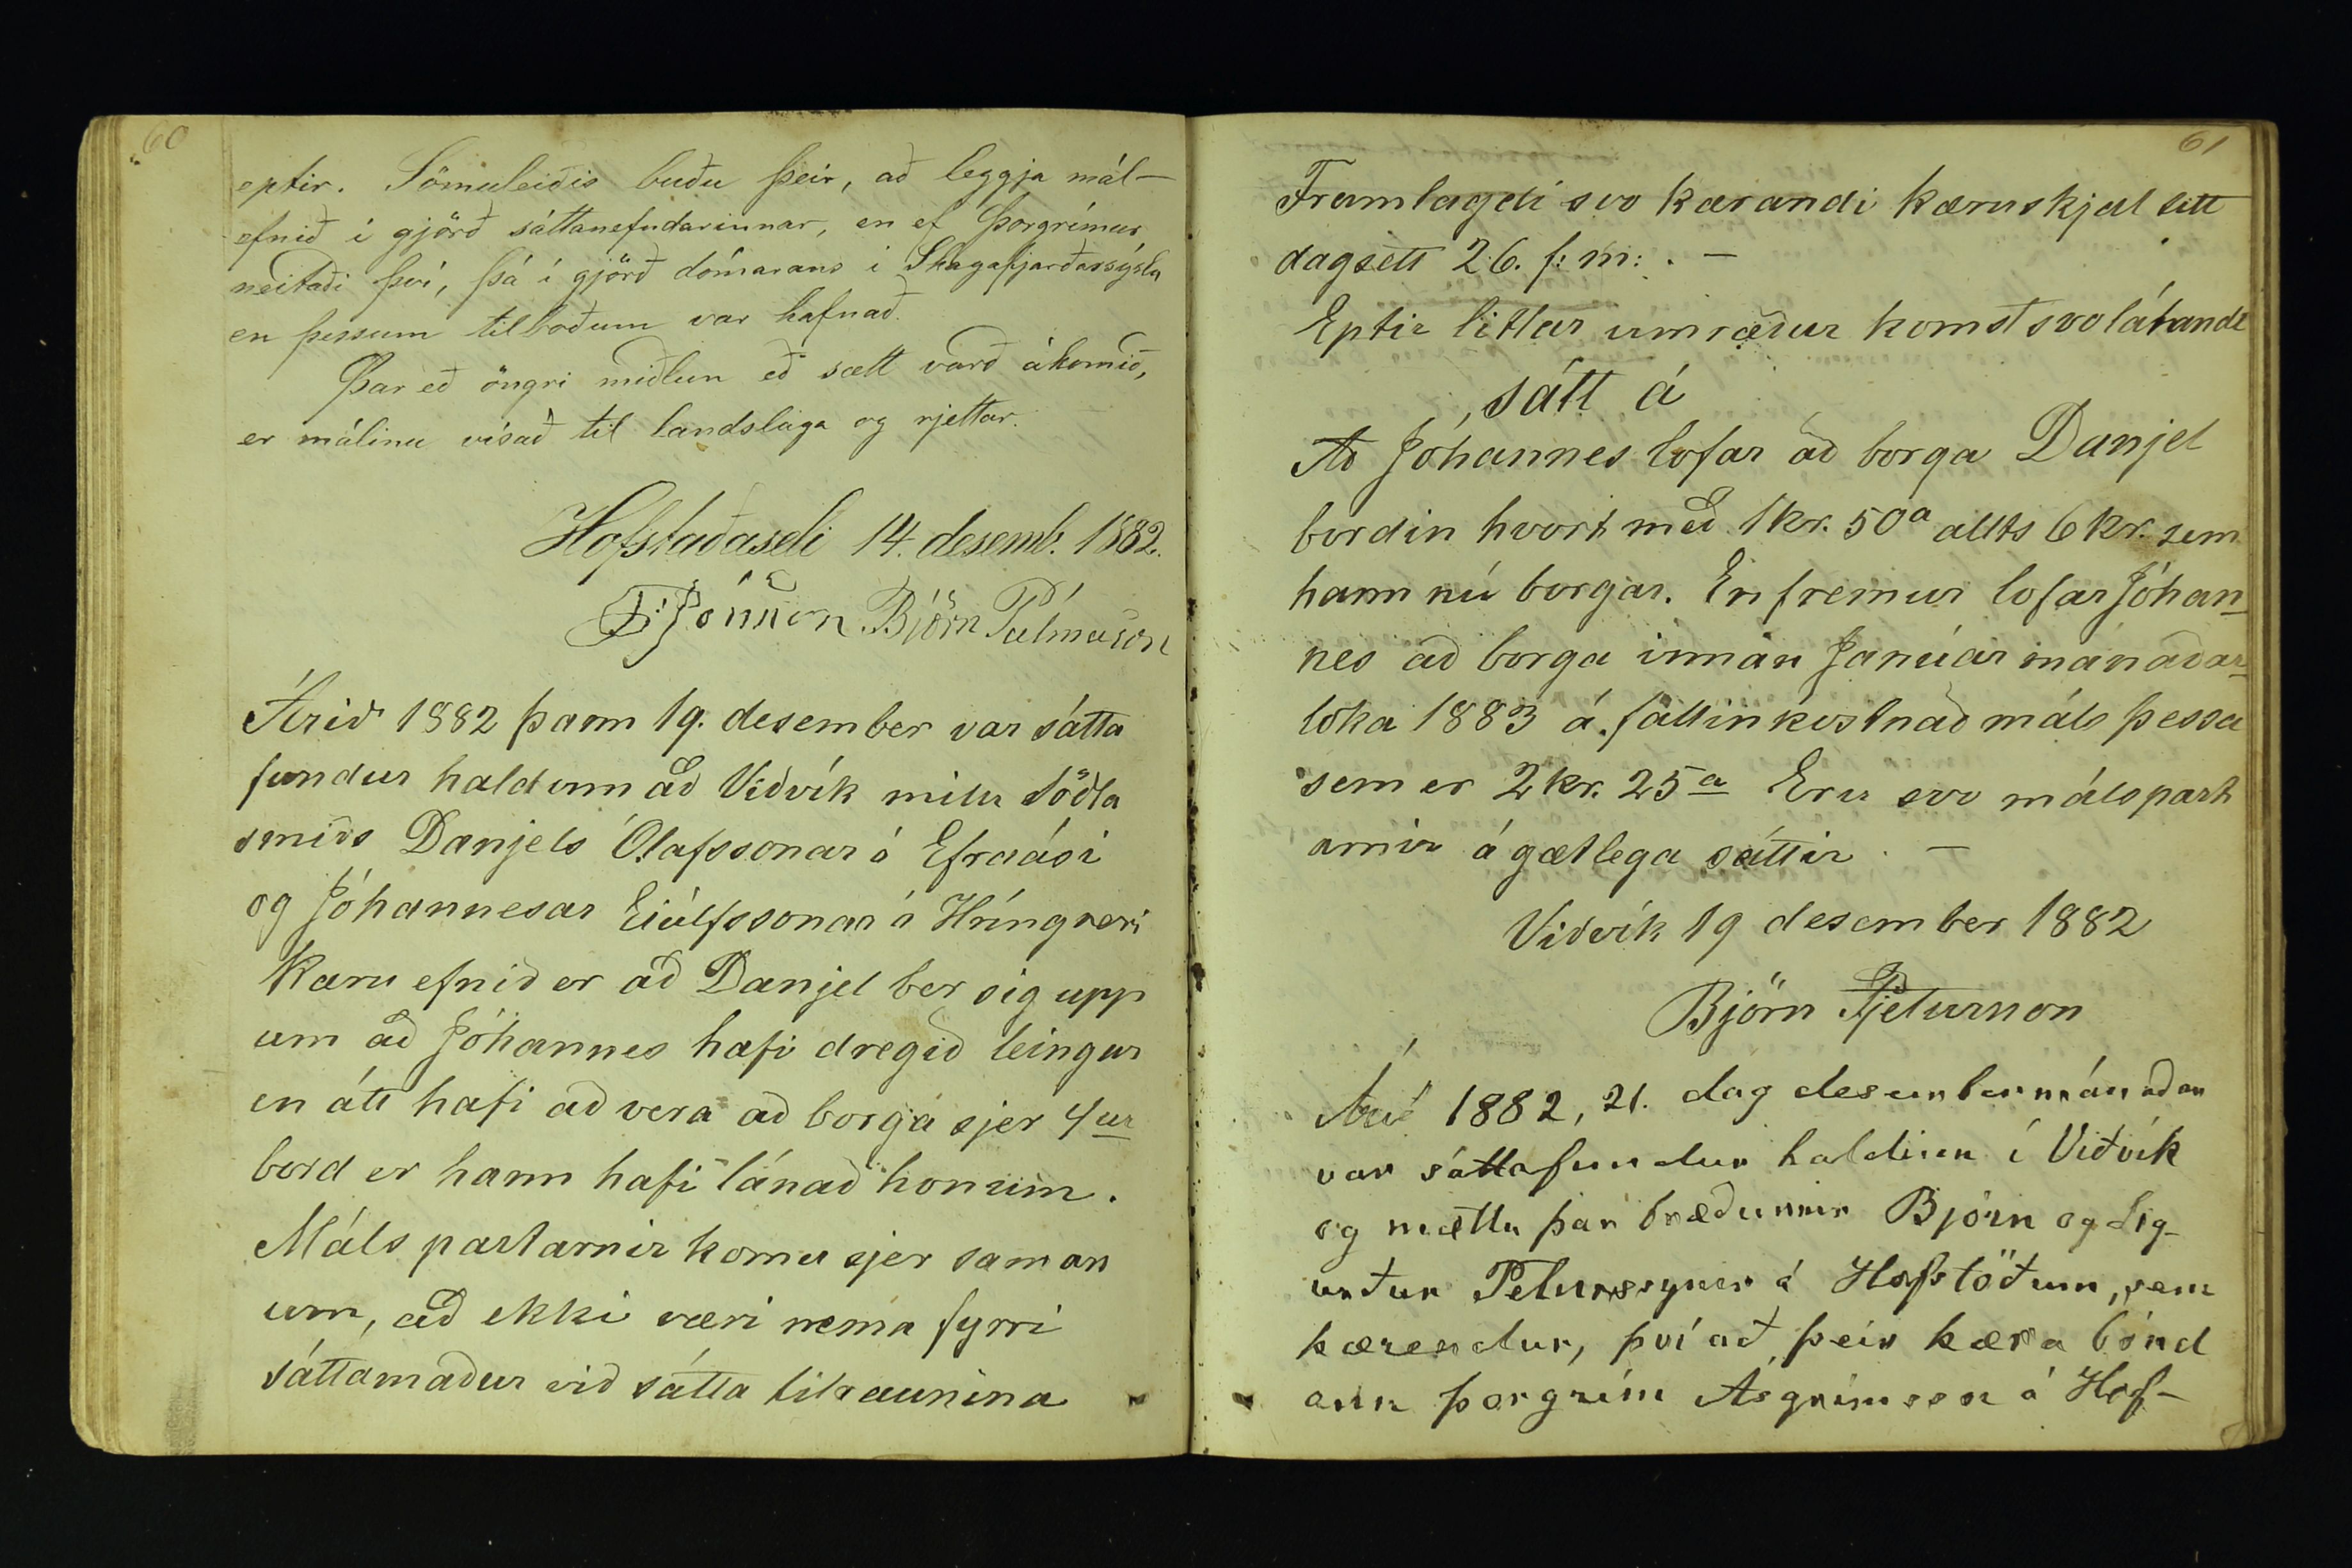 60
eptir. Sömuleiðis buðu þeir, að leggja mál-
efnið í gjörð sáttanefndarinnar, en ef Þorgrímur
neitaði því, þá í gjörð dómarans í Skagafjarðarsýslu
en þessum tilboðum var hafnað.
Þar eð öngri miðlun eð sætt varð ákomið,
er málinu vísað til landslaga og rjettar.
Hofstaðaseli 14. desemb. 1882.
Jónsson Björn Pálmason
Árið 1882 þann 19. desember var sátta
fundur haldinn að Viðvík millu söðla
smiðs Danjels Ólafssonar á Efraási
og Jóhannesar Eiúlfssonar á Hríngveri
Kæru efnið er að Danjel ber sig upp
um að Jóhannes hafi dregið leingur
en átt hafi að vera að borga sjer 4ur
bord er hann hafi lánað honum.
Máls partarnir komu sjer saman
um, að ekki væri nema fyrri
sáttamaður við sátta tilraunina
61
Framlagdi svo kærandi kæruskjal sitt
dagsett 26. f: m: . -
Eptir litlar umræður komst svolátandi
sátt á
Að Jóhannes lofar að borga Danjel
bordin hvort með 1 kr. 50a allts 6 kr. sem
hann nú borgar. En fremur lofar Jóhan-
nes að borga innan Janúar mánaðar-
loka 1883 á fallin kostnað máls þessa
sem er 2 kr. 25a Eru svo málspart
arnir ágætlega sáttir. -
Viðvík 19 desember 1882
Björn Pjetursson
Árið 1882, 21. dag desembermánaðar
var sáttafundur haldinn í Viðvík
og mættu þar bræðurnir Björn og Sig-
urður Peturssynir á Hofstöðum, sem
kærendur, því að þeir kæra bónd
ann Þorgrím Ásgrímsson á Hof-